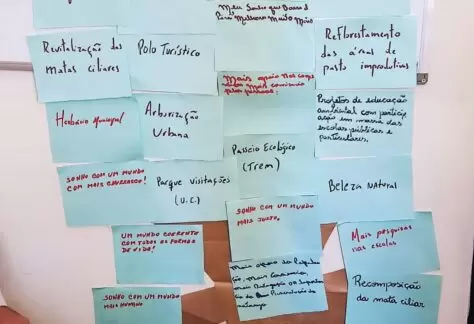 Meu Sonho que Guard
Para Melhorar Muito Mais
Revitalização das
matas ciliares
Polo Turístico
Reflorestamento
das áreas de
pasto improdutivas
Mais apoio nas
com Mais
Herbário Municipal
Arborização
Urbana
Projetos de educação
ambiental com particip
ação em massa das
escolas públicas e
particulares.
Passeio Ecológico
(Trem)
SONHO COM UM MUNDO
COM MAIS
Parque visitações
(U.C.)
Beleza Natural
SONHO COM UM MUNDO
MAIS JUSTO.
UM MUNDO COERENTE
COM TODAS AS FORMAS
DE VIDA!
Mais pesquisas
nas escolas
Mais
ão, mais
mais
SONHO COM UM MUNDO
MAIS HUMANO
Recomposição
da mata ciliar